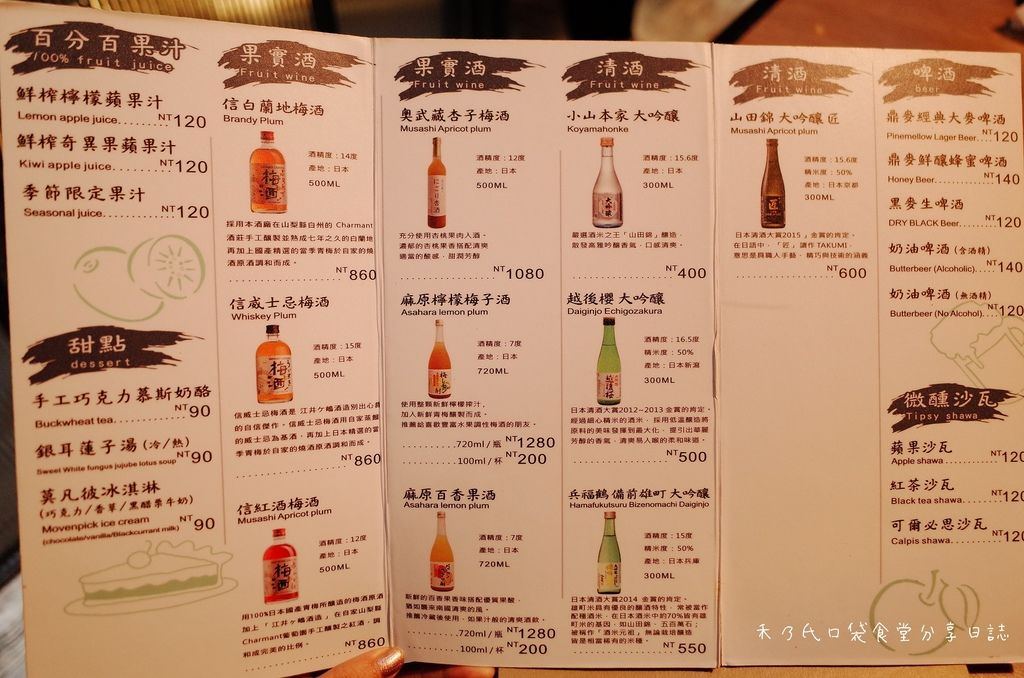 百分百果汁
100% fruit juice
鮮榨檸檬蘋果汁
Lemon apple juice........NT120
鮮榨奇異果蘋果汁
Kiwi apple juice..........NT120
季節限定果汁
Seasonal juice............NT120
甜點
dessert
手工巧克力慕斯奶酪
Buckwheat tea..........NT90
銀耳蓮子湯(冷/熱)
Sweet White fungus jujube lotus soup NT90
莫凡彼冰淇淋
(巧克力/香草/黑醋栗牛奶)
Movenpick ice cream NT90
(chocolate/vanilla/Blackcurrant milk)
果實酒
Fruit wine
信白蘭地梅酒
Brandy Plum
酒精度：14度
產地：日本
500ML
採用本酒廠在山梨縣自州的 Charmant
酒莊手工釀製並熟成七年之久的白蘭地
再加上國產精選的當季青梅於自家的燒
酒原酒調和而成。
NT860
信威士忌梅酒
Whiskey Plum
酒精度：15度
產地：日本
500ML
信威士忌梅酒是 江井ケ嶋酒造別出心裁
的自信傑作。信威士忌梅酒用自家蒸餾
的威士忌為基酒，再加上日本精選的當
季青梅於自家的燒酒原酒調和而成。
NT860
信紅酒梅酒
Musashi Apricot plum
酒精度：12度
產地：日本
500ML
用100%日本國產青梅所釀造的梅酒原酒
加上「江井ケ嶋酒造」在自家山梨縣
Charmant葡萄園手工釀製之紅酒，調
和成完美的比例。
NT860
果實酒
Fruit wine
奧武藏杏子梅酒
Musashi Apricot plum
酒精度：12度
產地：日本
500ML
充分使用杏桃果肉入酒。
濃郁的杏桃果香搭配清爽
適當的酸感，甜潤芳醇
NT1080
麻原檸檬梅子酒
Asahara lemon plum
酒精度：7度
產地：日本
720ML
使用整顆新鮮檸檬榨汁，
加入新鮮青梅釀製而成。
推薦給喜歡豐富水果調性梅酒的朋友。
720ml/瓶 NT1280
100ml/杯 NT200
麻原百香果酒
Asahara lemon plum
酒精度：7度
產地：日本
720ML
新鮮的百香果香味搭配優質果酸，
猶如蘭來南國清爽の風。
推薦冷藏後使用，如果汁般的清爽酒飲。
720ml/瓶 NT1280
100ml/杯 NT200
清酒
Fruit wine
小山本家 大吟釀
Koyamahonke
酒精度：15.6度
產地：日本
300ML
嚴選酒米之王「山田錦」釀造，
散發高雅吟釀香氣，口感清爽。
NT400
越後櫻 大吟釀
Daiginjo Echigozakura
酒精度：16.5度
精米度：50%
產地：日本新潟
300ML
日本清酒大賞2012~2013 金賞的肯定。
經過細心精米的酒米，採用低溫釀造將
原料的美味發揮到最大化，提引出華麗
芳醇的香氣，清爽易入喉的柔和味道。
NT500
兵福鶴 備前雄町 大吟釀
Hamafukutsuru Bizenomachi Daiginjo
酒精度：15度
精米度：50%
產地：日本兵庫
300ML
日本清酒大賞2014 金賞的肯定。
雄町米具有優良的釀酒特性，常被當作
配種酒米，在日本酒米中的70%皆有雄
町米的基因，如山田錦、五百萬石；
被稱作「酒米元祖」無論栽培釀造
皆是相當稀有的米種。
NT550
清酒
Fruit wine
山田錦 大吟釀 匠
Musashi Apricot plum
酒精度：15.6度
精米度：50%
產地：日本京都
300ML
日本清酒大賞2015」金賞的肯定。
在日語中，「匠」讀作TAKUMI，
意思是具職人手藝、精巧與技術的涵義
NT600
啤酒
beer
鼎麥經典大麥啤酒
Pinemellow Lager Beer..NT120
鼎麥鮮釀蜂蜜啤酒
Honey Beer..............NT140
黑麥生啤酒
DRY BLACK Beer.......NT120
奶油啤酒(含酒精)
Butterbeer (Alcoholic). NT140
奶油啤酒(無酒精)
Butterbeer (No Alcohol). NT120
微醺沙瓦
Tipsy shawa
蘋果沙瓦
Apple shawa...........NT120
紅茶沙瓦
Black tea shawa.......NT120
可爾必思沙瓦
Calpis shawa...........NT120
禾乃氏口袋食堂分享日誌